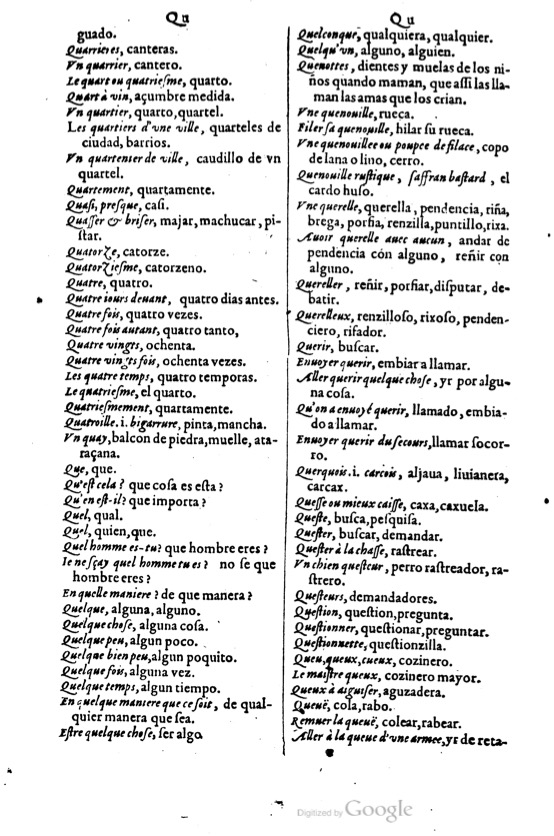 Qu
guado.
Quarrieres, canteras.
Vn quarrier, cantero.
Le quart ou quatrieſme, quarto.
Quart à vin, açumbre medida.
Vn quartier, quarto, quartel.
Les quartiers d'vne ville, quarteles de
ciudad, barrios.
Vn quartenier de ville, caudillo de vn
quartel.
Quartement, quartamente.
Quaſi, preſque, caſi.
Quaſſer & briſer, majar, machucar, pi-
ſtar.
Quatorze, catorze.
Quatorzieſme, catorzeno.
Quatre, quatro.
Quatre iours deuant, quatro dias antes.
Quatre fois, quatro vezes.
Quatre fois autant, quatro tanto,
Quatre vingts, ochenta.
Quatre vingts fois, ochenta vezes.
Les quatre temps, quatro temporas.
Le quatrieſme, el quarto.
Quatrieſmement, quartamente.
Quatroille. i. bigarrure, pinta, mancha.
Vn quay, balcon de piedra, muelle, ata-
raçana.
Que, que.
Qu'eſt cela? que coſa es eſta?
Qu'en eſt-il? que importa?
Quel, qual.
Quel, quien, que.
Quel homme es-tu? que hombre eres?
Ie ne ſçay quel homme tu es? no ſe que
hombre eres?
En quelle maniere? de que manera?
Quelque, alguna, alguno.
Quelque choſe, alguna coſa.
Quelque peu, algun poco.
Quelque bien peu, algun poquito.
Quelque fois, alguna vez.
Quelque temps, algun tiempo.
En quelque maniere que ce ſoit, de qual-
quier manera que ſea.
Eſtre quelque choſe, ſer algo
Qu
Quelconque, qualquiera, qualquier.
Quelqu'vn, alguno, alguien.
Quenottes, dientes y muelas de los ni-
ños quando maman, que aſſi las lla-
man las amas que los crian.
Vne quenouille, rueca.
Filer ſa quenouille, hilar ſu rueca.
Vne quenouillee ou poupee de filace, copo
de lana o lino, cerro.
Quenouille ruſtique, ſaffran baſtard, el
cardo huſo.
Vne querelle, querella, pendencia, riña,
brega, porfia, renzilla, puntillo, rixa.
Auoir querelle auec aucun, andar de
pendencia còn alguno, reñir con
alguno.
Quereller, reñir, porfiar, diſputar, de-
batir.
Querelleux, renzilloſo, rixoſo, penden-
ciero, rifador.
Querir, buſcar.
Enuoyer querir, embiar a llamar.
Aller querir quelque choſe, yr por algu-
na coſa.
Qu'on a enuoyé querir, llamado, embia-
do a llamar.
Enuoyer querir du ſecours, llamar ſocor-
ro.
Querquois. i. carcois, aljaua, liuianera,
carcax.
Queſſe ou mieux caiſſe, caxa, caxuela.
Queſte, buſca, peſquiſa.
Queſter, buſcar, demandar.
Queſter à la chaſſe, raſtrear.
Vn chien queſteur, perro raſtreador, ra-
ſtrero.
Queſteurs, demandadores.
Queſtion, queſtion, pregunta.
Queſtionner, queſtionar, preguntar.
Queſtionnette, queſtionzilla.
Queu, queux, cueux, cozinero.
Le maiſtre queux, cozinero mayor.
Queux à aiguiſer, aguzadera.
Queuë, cola, rabo.
Remuer la queuë, colear, rabear.
Aller à la queue d'vne armee, yr de reta-
Digitized by Google